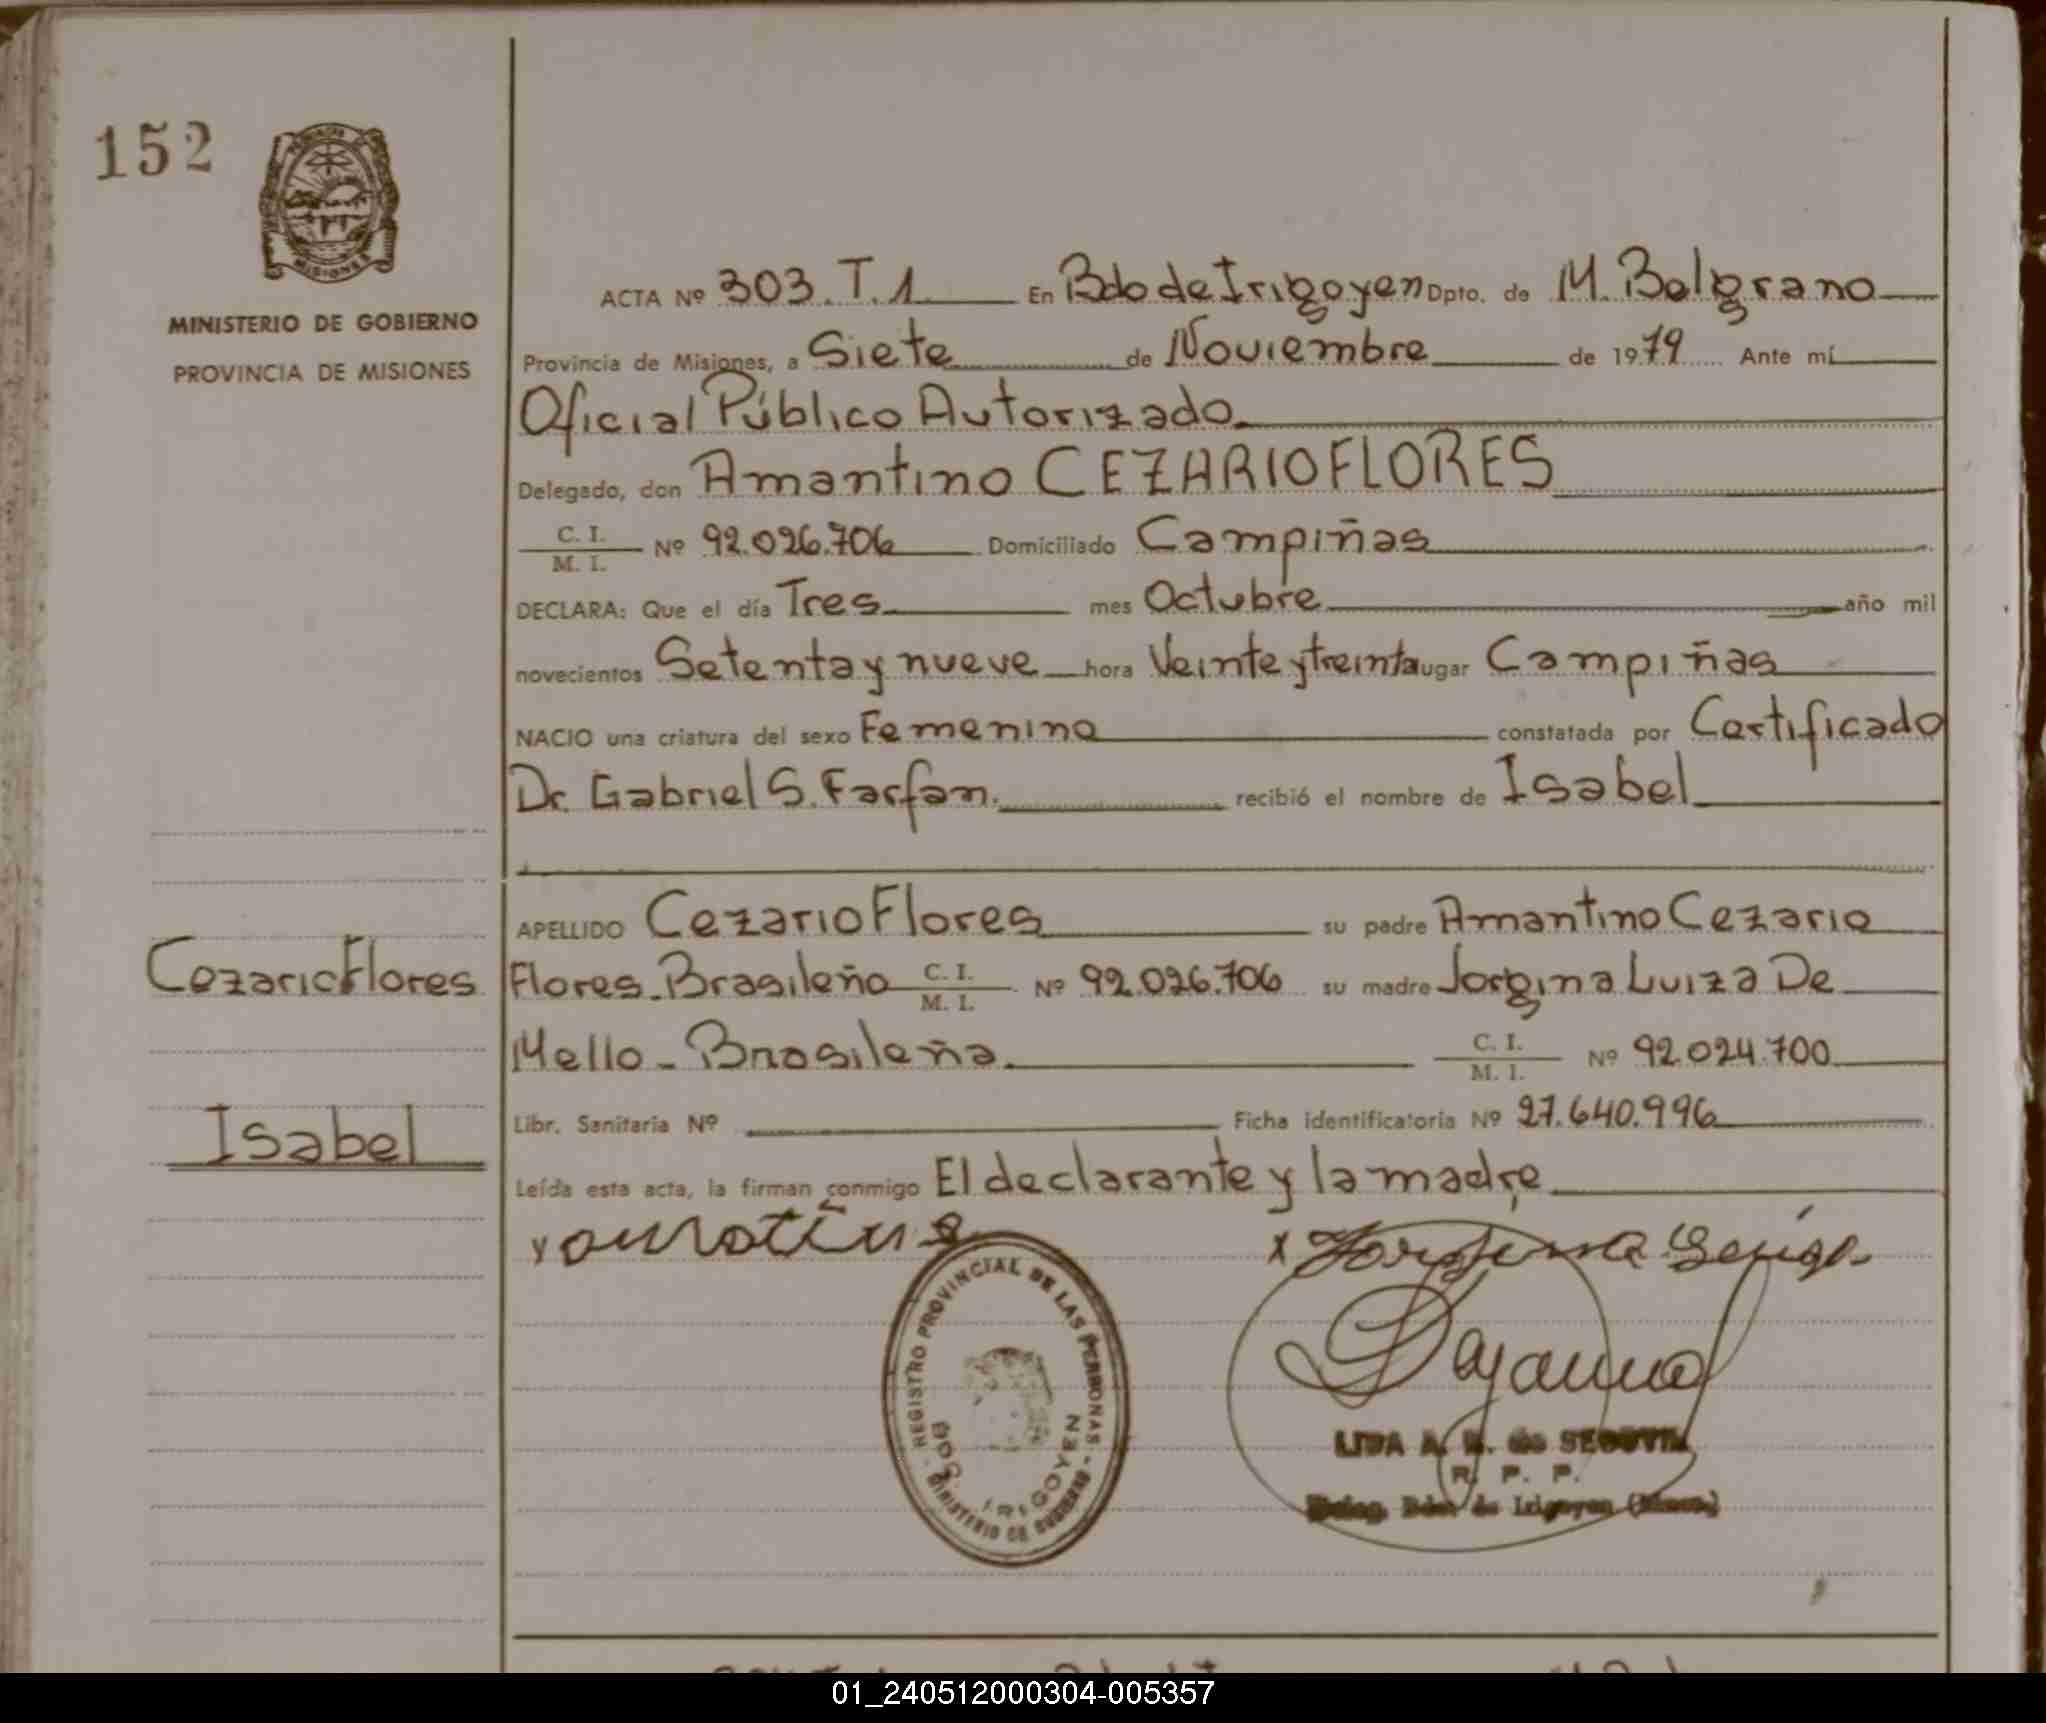 152
MISIONES
MINISTERIO DE GOBIERNO
PROVINCIA DE MISIONES
Cezario Flores
Isabel
ACTA Nº 303. T. 1 En Bdo de Irigoyen Dpto. de M. Belgrano
Provincia de Misiones, a Siete de Noviembre de 1979 Ante mí
Oficial Público Autorizado.
Delegado, don Amantino CEZARIO FLORES
C. I. / M. I. Nº 92.026.706 Domiciliado Campiñas
DECLARA: Que el día Tres mes Octubre año mil
novecientos Setenta y nueve hora Veinte y treinta lugar Campiñas
NACIO una criatura del sexo Femenino constatada por Certificado
Dr. Gabriel S. Farfan. recibió el nombre de Isabel
APELLIDO Cezario Flores su padre Amantino Cezario
Flores. Brasileño C. I. / M. I. Nº 92.026.706 su madre Jorgina Luiza De
Mello - Brasileña. C. I. / M. I. Nº 92.024.700
Libr. Sanitaria Nº Ficha identificatoria Nº 27.640.996
Leída esta acta, la firman conmigo El declarante y la madre
REGISTRO PROVINCIAL DE LAS PERSONAS - MINISTERIO DE GOBIERNO
IRIGOYEN
LIDA A. de SEGOVIA
R. P. P.
Deleg. Bdo. de Irigoyen (Mnes.)
01_240512000304-005357